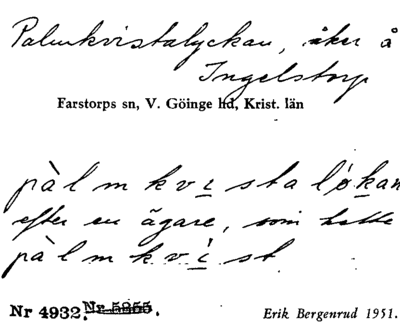 Palmkvistalyckan, åker å
Ingelstorp
Farstorps sn, V. Göinge hd, Krist. län
pàlmkvistaløkan
efter en ägare, som hette
pàlmkvìst
Nr 4932. Nr 5255.
Erik Bergenrud 1951.